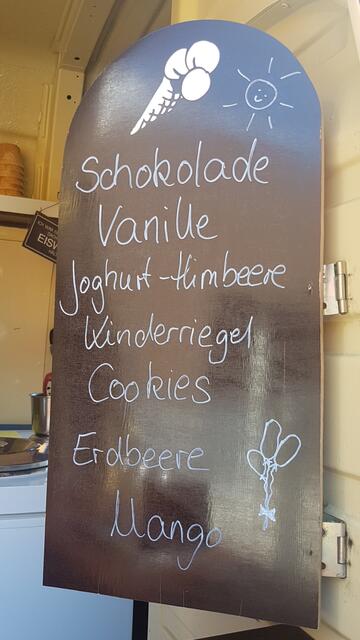 Schokolade
Vanille
Joghurt-Himbeere
Kinderriegel
Cookies
Erdbeere
Mango